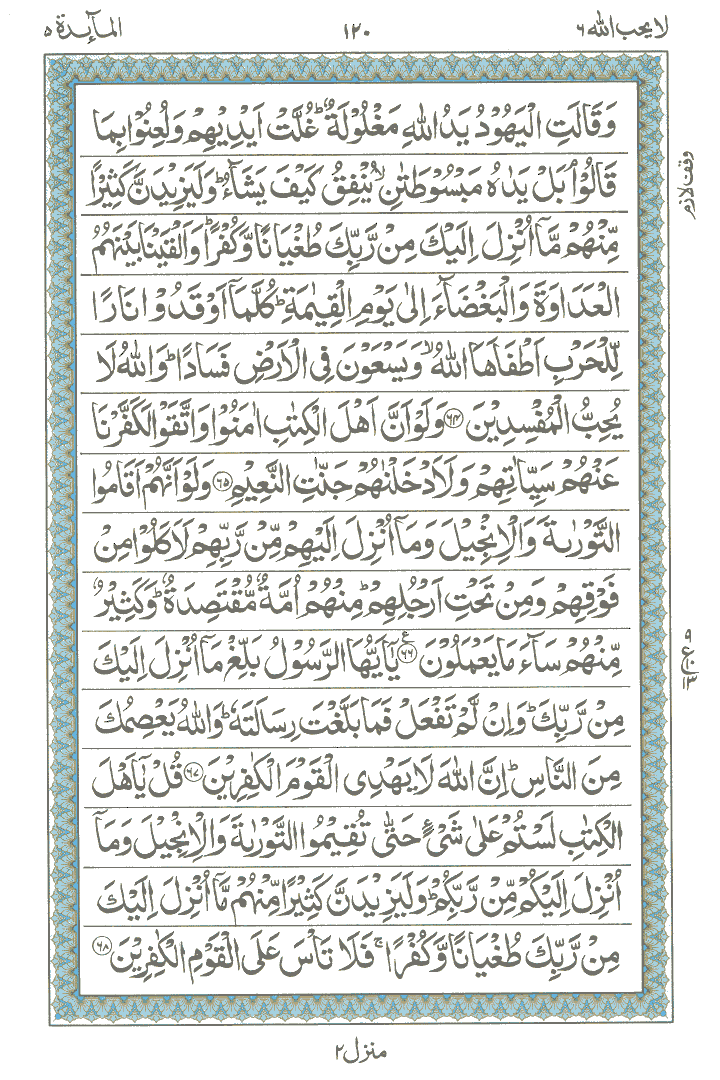 لا يحب الله ٦ ١٢٠ المآئدة ٥
وَقَالَتِ الْيَهُوْدُ يَدُ اللّٰهِ مَغْلُوْلَةٌ ؕ غُلَّتْ اَيْدِيْهِمْ وَلُعِنُوْا بِمَا
قَالُوْا ۘ بَلْ يَدٰهُ مَبْسُوْطَتٰنِ ۙ يُنْفِقُ كَيْفَ يَشَآءُ ؕ وَلَيَزِيْدَنَّ كَثِيْرًا
وقف لازم
مِّنْهُمْ مَّآ اُنْزِلَ اِلَيْكَ مِنْ رَّبِّكَ طُغْيَانًا وَّكُفْرًا ؕ وَاَلْقَيْنَا بَيْنَهُمُ
الْعَدَاوَةَ وَالْبَغْضَآءَ اِلٰى يَوْمِ الْقِيٰمَةِ ؕ كُلَّمَآ اَوْقَدُوْا نَارًا
لِّلْحَرْبِ اَطْفَاَهَا اللّٰهُ ۙ وَيَسْعَوْنَ فِى الْاَرْضِ فَسَادًا ؕ وَاللّٰهُ لَا
يُحِبُّ الْمُفْسِدِيْنَ ﴿٦٤﴾ وَلَوْ اَنَّ اَهْلَ الْكِتٰبِ اٰمَنُوْا وَاتَّقَوْا لَكَفَّرْنَا
عَنْهُمْ سَيِّاٰتِهِمْ وَلَاَدْخَلْنٰهُمْ جَنّٰتِ النَّعِيْمِ ﴿٦٥﴾ وَلَوْ اَنَّهُمْ اَقَامُوا
التَّوْرٰىةَ وَالْاِنْجِيْلَ وَمَآ اُنْزِلَ اِلَيْهِمْ مِّنْ رَّبِّهِمْ لَاَكَلُوْا مِنْ
فَوْقِهِمْ وَمِنْ تَحْتِ اَرْجُلِهِمْ ؕ مِنْهُمْ اُمَّةٌ مُّقْتَصِدَةٌ ؕ وَكَثِيْرٌ
مِّنْهُمْ سَآءَ مَا يَعْمَلُوْنَ ﴿٦٦﴾ يٰٓاَيُّهَا الرَّسُوْلُ بَلِّغْ مَآ اُنْزِلَ اِلَيْكَ
مِنْ رَّبِّكَ ؕ وَاِنْ لَّمْ تَفْعَلْ فَمَا بَلَّغْتَ رِسَالَتَهٗ ؕ وَاللّٰهُ يَعْصِمُكَ
مِنَ النَّاسِ ؕ اِنَّ اللّٰهَ لَا يَهْدِى الْقَوْمَ الْكٰفِرِيْنَ ﴿٦٧﴾ قُلْ يٰٓاَهْلَ
الْكِتٰبِ لَسْتُمْ عَلٰى شَىْءٍ حَتّٰى تُقِيْمُوا التَّوْرٰىةَ وَالْاِنْجِيْلَ وَمَآ
اُنْزِلَ اِلَيْكُمْ مِّنْ رَّبِّكُمْ ؕ وَلَيَزِيْدَنَّ كَثِيْرًا مِّنْهُمْ مَّآ اُنْزِلَ اِلَيْكَ
مِنْ رَّبِّكَ طُغْيَانًا وَّكُفْرًا ۚ فَلَا تَاْسَ عَلَى الْقَوْمِ الْكٰفِرِيْنَ ﴿٦٨﴾
منزل ٢